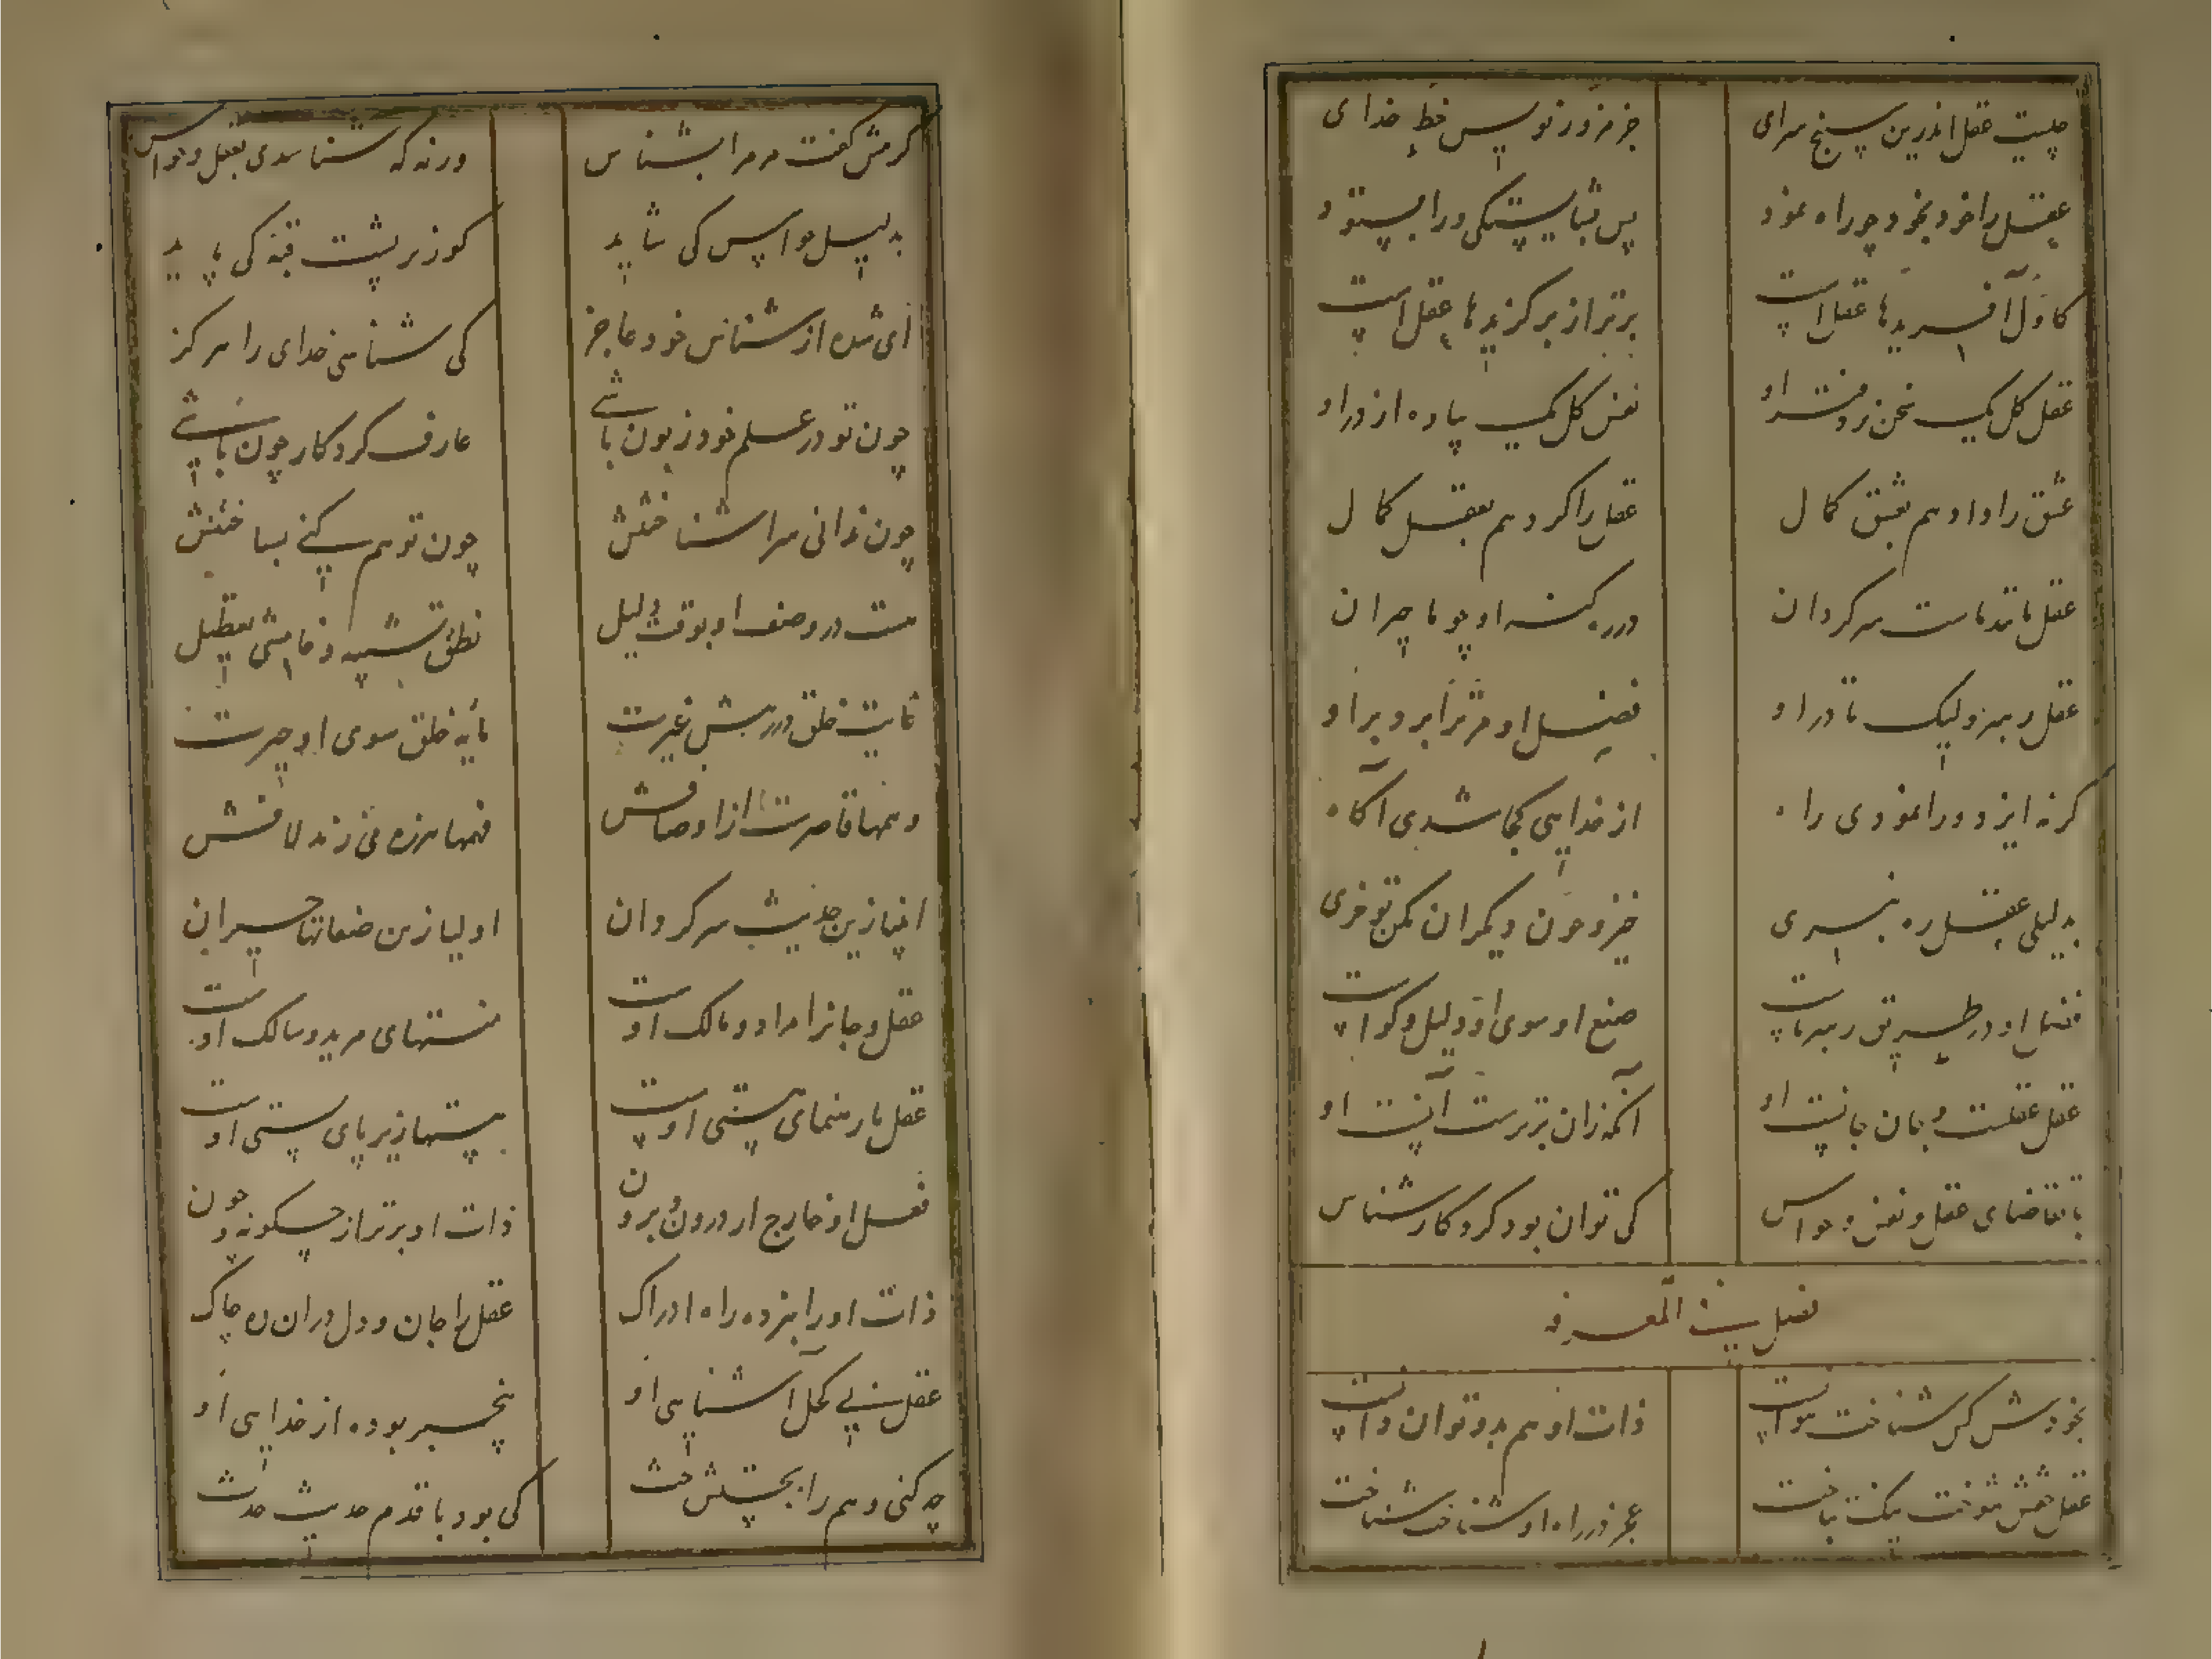 چیست عقل اندرین سپنج سرای جز مزور نویس خط خدای
عقل را خود بخود چو راه نمود پس بشایستگی ورا بستود
کاول آفریدها عقل است برتر از برگزیدها عقل است
عقل کل یک سخن ز دفتر او نفس کل یک پیاده از در او
عشق را داد هم بعشق کمال عقل را کرد هم بعقل کمال
عقل مانند ماست سرگردان در ره کنه او چو ما حیران
عقل رهبر ولیک تا در او فضل او مر ترا برد بر او
گرنه ایزد ورا نمودی راه از خدایی کجا شدی آگاه
بدلیلی عقل ره نبری خیره چون دیگران مکن تو خری
فضل او در طریق رهبر ماست صنع او سوی او دلیل و گواست
عقل عقلست و جان جانست او آنکه زان برترست آنست او
با تقاضای عقل و نفس و حواس کی توان بود کردگار شناس
فصل فی المعرفه
بخودش کس شناخت نتوانست ذات او هم بدو توان دانست
عقل حقش بتوخت نیک بتاخت عجز در راه او شناخت شناخت
کرمش گفت مر مرا بشناس ورنه که شناسدی بعقل و حواس
بدلیل حواس کی شاید گوز بر پشت قبه کی پاید
ای شده از شناس خود عاجز کی شناسی خدای را هرگز
چون تو در علم خود زبون باشی عارف کردگار چون باشی
چون ندانی سرا شناختنش چون توهم کنی بساختنش
هست در وصف او بوقت دلیل نطق تشبیه و خامشی تعطیل
غایت خلق در رهش غیرت مایه خلق سوی او حیرت
وهمها قاصرست از اوصافش فهمها هرزه می زند لافش
انبیا زین حدیث سرگردان اولیا زین صفاتها حیران
عقل و جانرا مراد و مالک اوست منتهای مرید و سالک اوست
عقل ما رهنمای هستی اوست هستها زیر پای هستی اوست
فعل او خارج از درون و برون ذات او برتر از چگونه و چون
ذات او را نبرده راه ادراک عقل را جان و دل در ان ره چاک
عقل بی کحل آشنایی او بیخبر بوده از خدایی او
چه کنی وهم را بجستنش حث کی بود با قدم حدیث حدث